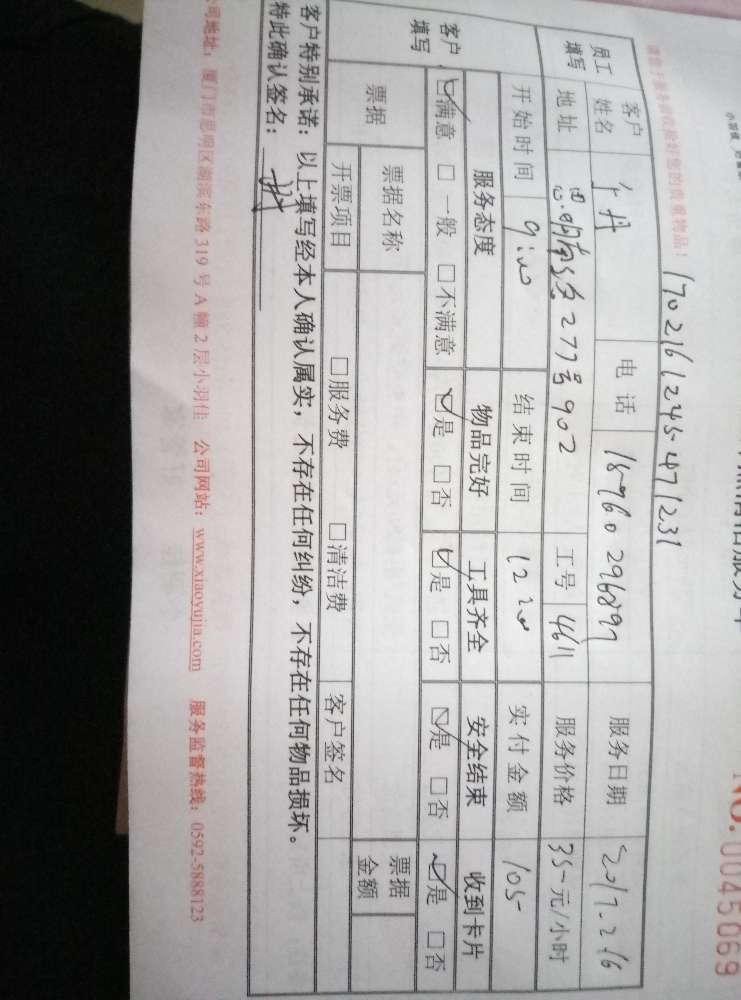 NO.0045069
1702161245-471231
员工填写
客户姓名 电话 服务日期 2017.2.16
地址 277号902 工号 4611 服务价格 35-元/小时
开始时间 9:00 结束时间 1200 实付金额 105-
客户填写
服务态度 物品完好 工具齐全 安全结束 收到卡片
☑满意 □一般 □不满意 ☑是 □否 ☑是 □否 ☑是 □否 ☑是 □否
票据 票据名称 票据金额
开票项目 □服务费 □清洁费 客户签名
客户特别承诺：以上填写经本人确认属实，不存在任何纠纷，不存在任何物品损坏。
特此确认签名：
公司地址：厦门市思明区湖滨东路319号A幢2层小羽佳 公司网站：www.xiaoyujia.com 服务监督热线：0592-5888123